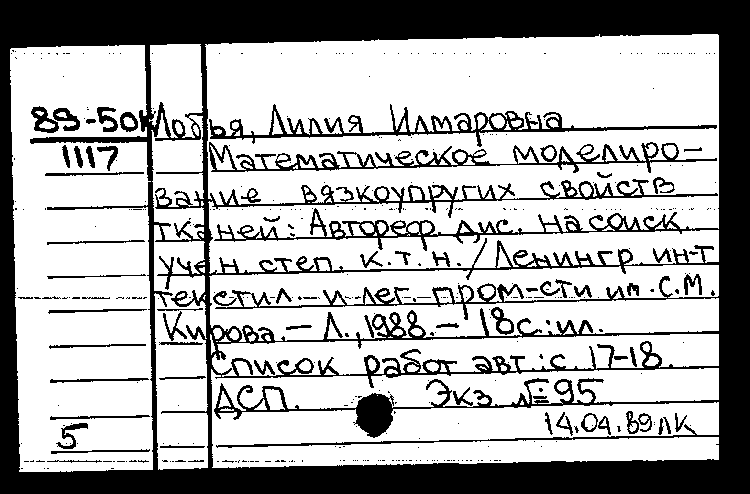 89-50к Лобья, Лилия Илмаровна.
1117 Математическое моделиро-
вание вязкоупругих свойств
тканей: Автореф. дис. на соиск.
учен. степ. к.т.н. / Ленингр. ин-т
текстил. и лег. пром-сти им. С.М.
Кирова. – Л., 1988. – 18с.: ил.
Список работ авт.: с. 17-18.
ДСП. Экз №95
5 14.04.89 ЛК